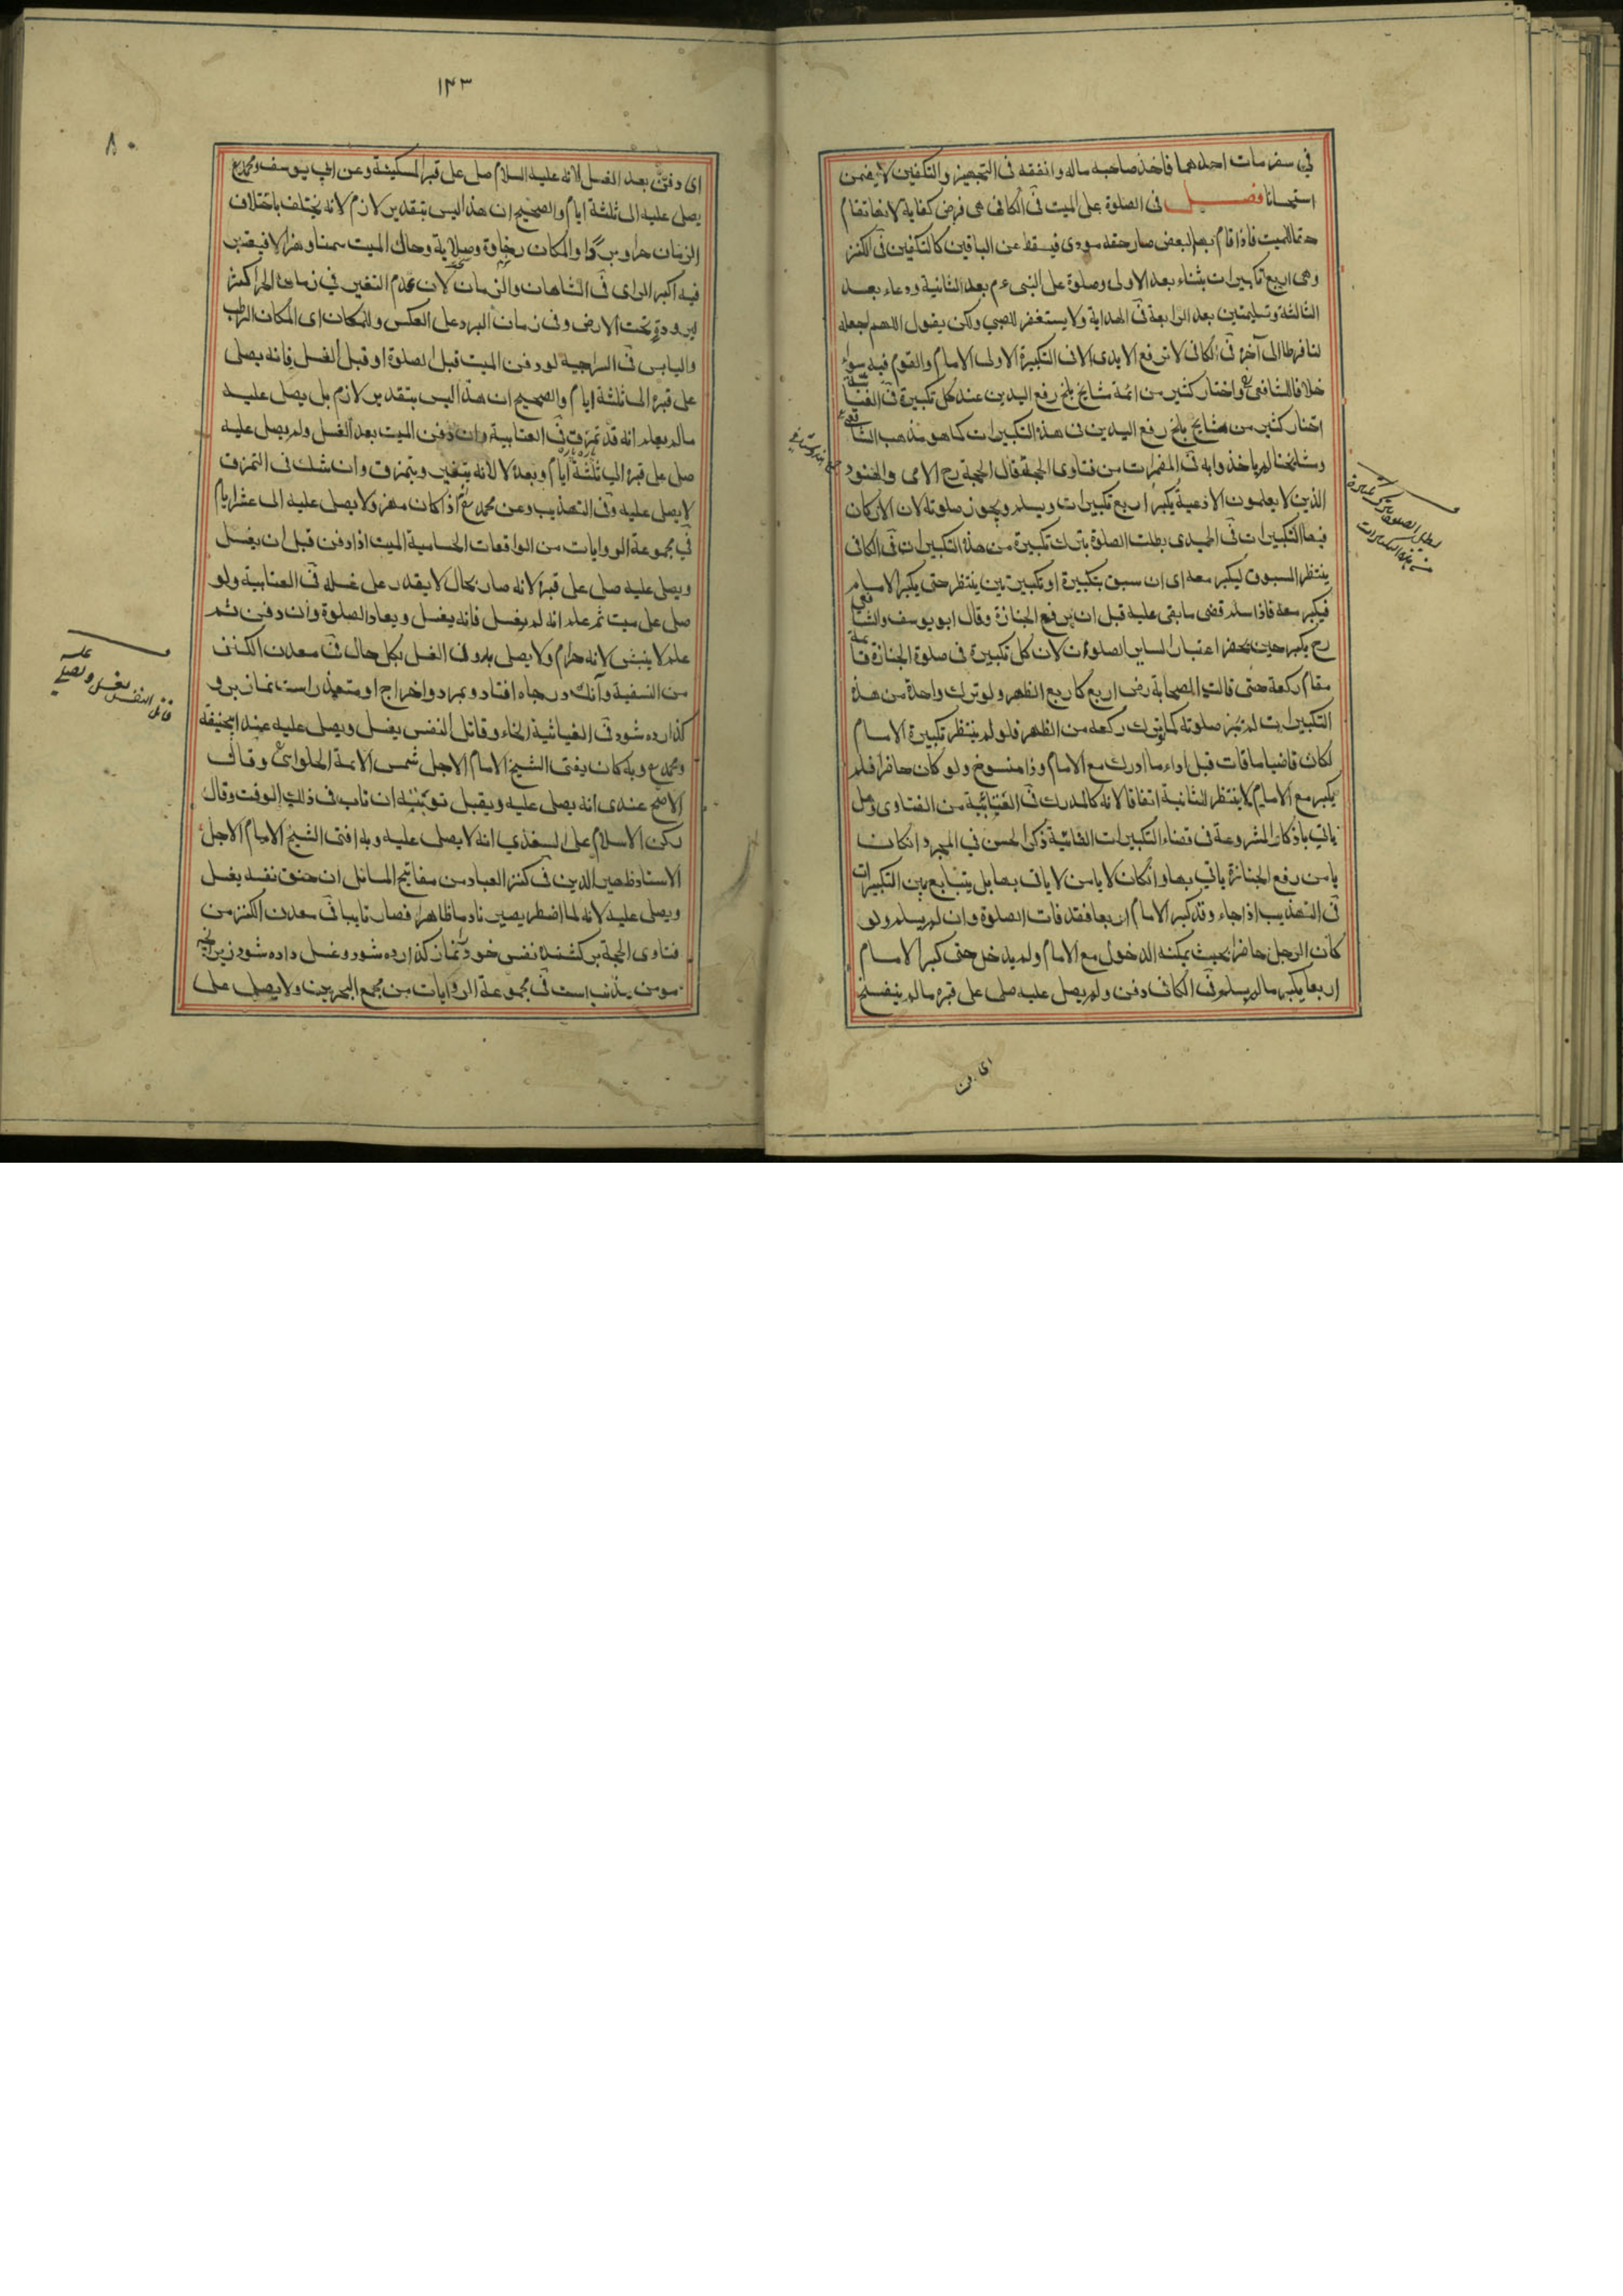 في سفر مات احدهما فاخذ صاحبه ماله وانفقه فى التجهيز والتكفين لا يضمن
استحسانا فصل فى الصلوة على الميت فى الكافى هى فرض كفاية لانها تقام
حقا للميت فاذا قام بها البعض صار حقه مودى فيسقط عن الباقين كالتكفين فى الكنز
وهى اربع تكبيرات بثناء بعد الاولى وصلوة على النبى عم بعد الثانية ودعاء بعد
الثالثة وتسليمتين بعد الرابعة فى الهداية ولا يستغفر للصبي ولكن يقول اللهم اجعله
لنا فرطا الى آخره فى الكافى لا ترفع الايدى الا فى التكبيرة الاولى الامام والقوم فيه سواء
خلافا للشافعى واختار كثير من ائمة مشايخ بلخ رفع اليدين عند كل تكبيرة فى
اختار كثير من مشايخ بلخ رفع اليدين فى هذه التكبيرات كما هو مذهب الشافعى
ومشايخنا لم ياخذوا به فى المضمرات من فتاوى الحجة قال الحجة رح الامى والجنود
الذين لا يعلمون الادعية يكبر اربع تكبيرات ويسلم ويجوز صلوته لان الاركان
فيها التكبيرات فى الحميدى بطلت الصلوة بترك تكبيرة من هذه التكبيرات فى الكافى
ينتظر المسبوق ليكبر معه اى ان سبق بتكبيرة او تكبيرتين ينتظر حتى يكبر الامام
فيكبر معه فاذا سلم قضى ما بقى عليه قبل ان يرفع الجنازة وقال ابو يوسف والشافعى
رح يكبر حين يحضر اعتبارا لساير الصلوة لان كل تكبيرة فى صلوة الجنازة قائمة
مقام ركعة حتى قالت الصحابة رض اربع كاربع الظهر ولو ترك واحدة من هذه
التكبيرات لم تجز صلوته كما ترك ركعة من الظهر فلو لم ينتظر تكبيرة الامام
لكان قاضيا ما فات قبل اداء ما ادرك مع الامام وذا منسوخ ولو كان حاضرا فلم
يكبر مع الامام لا ينتظر الثانية اتفاقا لانه كالمدرك فى الغياثية من الفتاوى وهل
ياتى باذكار المشروعة فى قضاء التكبيرات الفائتة ذكر الحسن في المجرد ان كان
يامن رفع الجنازة ياتي بها وان كان لا يامن لا ياتى بها بل يتابع بين التكبيرات
فى التهذيب اذا جاء وقد كبر الامام اربعا فقد فات الصلوة وان لم يسلم ولو
كان الرجل حاضرا بحيث يمكنه الدخول مع الامام ولم يدخل حتى كبر الامام
اربعا يكبر ما لم يسلم فى الكافى دفن ولم يصل عليه صلى على قبره ما لم ينفسخ
اى دفن
۱۴۳
۸۰
اى دفن بعد الغسل لانه عليه السلام صلى على قبر المسكينة وعن ابي يوسف ومحمد رح
يصلى عليه الى ثلثة ايام والصحيح ان هذا ليس بتقدير لازم لانه يختلف باختلاف
الزمان حرا وبردا والمكان رخاوة وصلابة وحال الميت سمنا وهزالا فيعتبر
فيه اكبر الراى فى الشاهان والزمان لان عدم التغير في زمان الحر اكثر
لبرودة تحت الارض وفى زمان البرد على العكس والمكان اى المكان الرطب
واليابس فى السراجية لو دفن الميت قبل الصلوة او قبل الغسل فانه يصلى
على قبره الى ثلثة ايام والصحيح ان هذا ليس بتقدير لازم بل يصلى عليه
مالم يعلم انه قد تمزق فى العتابية وان دفن الميت بعد الغسل ولم يصل عليه
صلى على قبره الى ثلثة ايام وبعده لا لانه يتغير ويتمزق وان شك فى التمزق
لا يصلى عليه وفى التهذيب وعن محمد رح اذا كان مهزولا يصلى عليه الى عشر ايام
في مجموعة الروايات من الواقعات الحسامية الميت اذا دفن قبل ان يغسل
ويصلى عليه صلى على قبره لانه صار بحال لا يقدر على غسله فى العتابية ولو
صلى على ميت ثم علم انه لم يغسل فانه يغسل ويعاد الصلوة وان دفن ثم
علم لا ينبش لانه حرام ولا يصلى بدون الغسل بكل حال فى معدن الكنز
من النسفية وآنك در چاه افتاد وبمرد واخراج او متعذر است نماز برو
كذارده شود فى الغياثية الخاء وقاتل النفس يغسل ويصلى عليه عند ابيحنيفة
ومحمد رح وبه كان يفتى الشيخ الامام الاجل شمس الائمة الحلوائى وقال
الاصح عندى انه يصلى عليه ويقبل توبته ان تاب فى ذلك الوقت وقال
ركن الاسلام على السغدي انه لا يصلى عليه وبه افتى الشيخ الامام الاجل
الاستاد ظهير الدين فى كنز العباد من مفاتيح المسائل ان خنق نفسه يغسل
ويصلى عليه لانه لما اضطر يصير نادما ظاهرا فصار تايبا فى معدن الكنز من
فتاوى الحجة بر كشنده نفس خود نماز كذارده شود وغسل داده شود زيراچه
مومن مذنب است فى مجموعة الروايات من مجمع البحرين ولا يصلى على
قاتل النفس يغسل ويصلى عليه